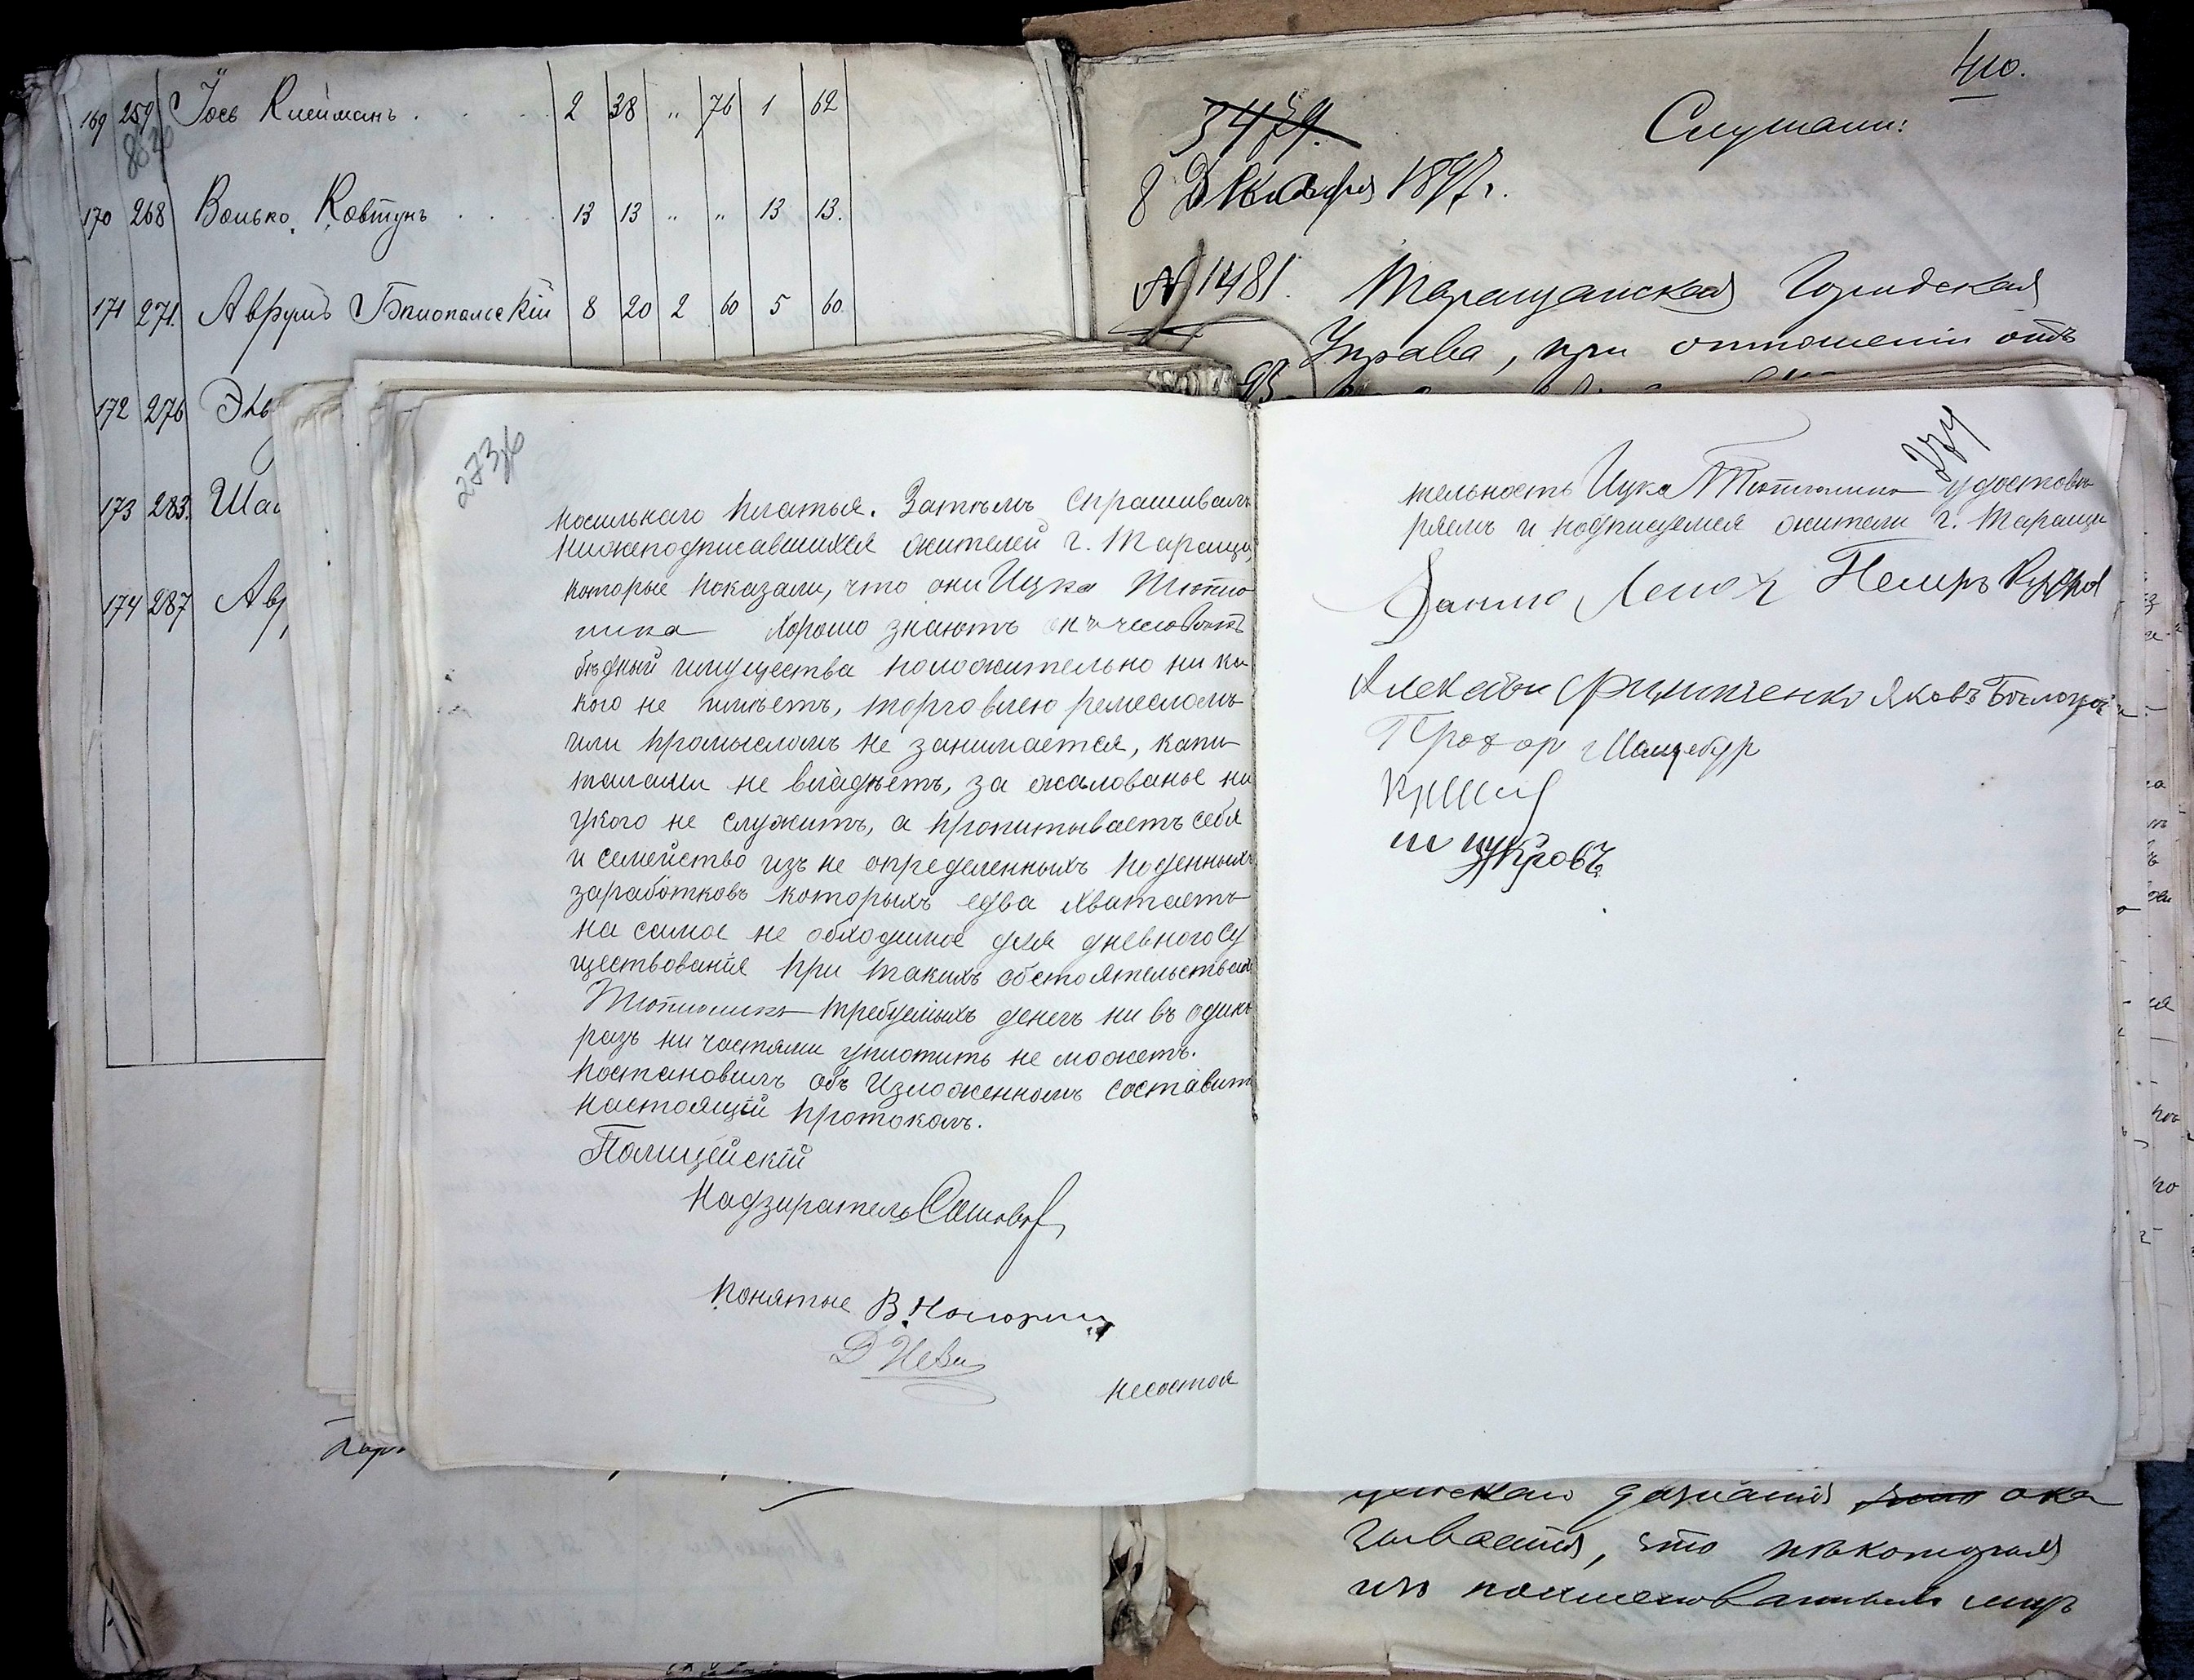 169 259 Іось Клейманъ . . . 2 38 „ 76 1 62
170 268 Волько Ковтунъ . . . 13 13 „ „ 13 13.
171 271. Аврумъ Бялопольскій 8 20 2 60 5 60.
172 276
173 283.
174 287
410.
3479.
Слушали:
8 Декабря 1897 г.
№ 1481. Таращанская Городская
Управа, при отношеніи отъ
93
273об
носильнаго платья. Затѣмъ спрашивалъ
нижеподписавшихся жителей г. Таращи,
которые показали, что они Ицка Тютю
ника хорошо знаютъ человѣкъ
бѣдный имущества положительно ни ка
кого не имѣетъ, торговлею ремесломъ
или промысломъ не занимается, капи
талами не владѣетъ, за жалованье ни
укого не служитъ, а пропитываетъ себя
и семейство изъ не определенныхъ поденныхъ
заработковъ которыхъ едва хватаетъ
на самое не обходимое для дневного су
ществованія при такихъ обстоятельствахъ
Тютюникъ требуемыхъ денегъ ни въ одинъ
разъ ни частями уплотить не можетъ.
Постановилъ объ изложенномъ составить
настоящій протоколъ.
Полицейскій
Надзиратель
Понятые В.
Д
несостоя
274
тельность Ицка Тютюника удостовѣ
ряемъ и подписуемся жители г. Таращи
Данило
Алексѣй Филипченко Яковъ
Прохор
дознанія ока
зывается, что нѣкоторыя
изъ поименованныхъ